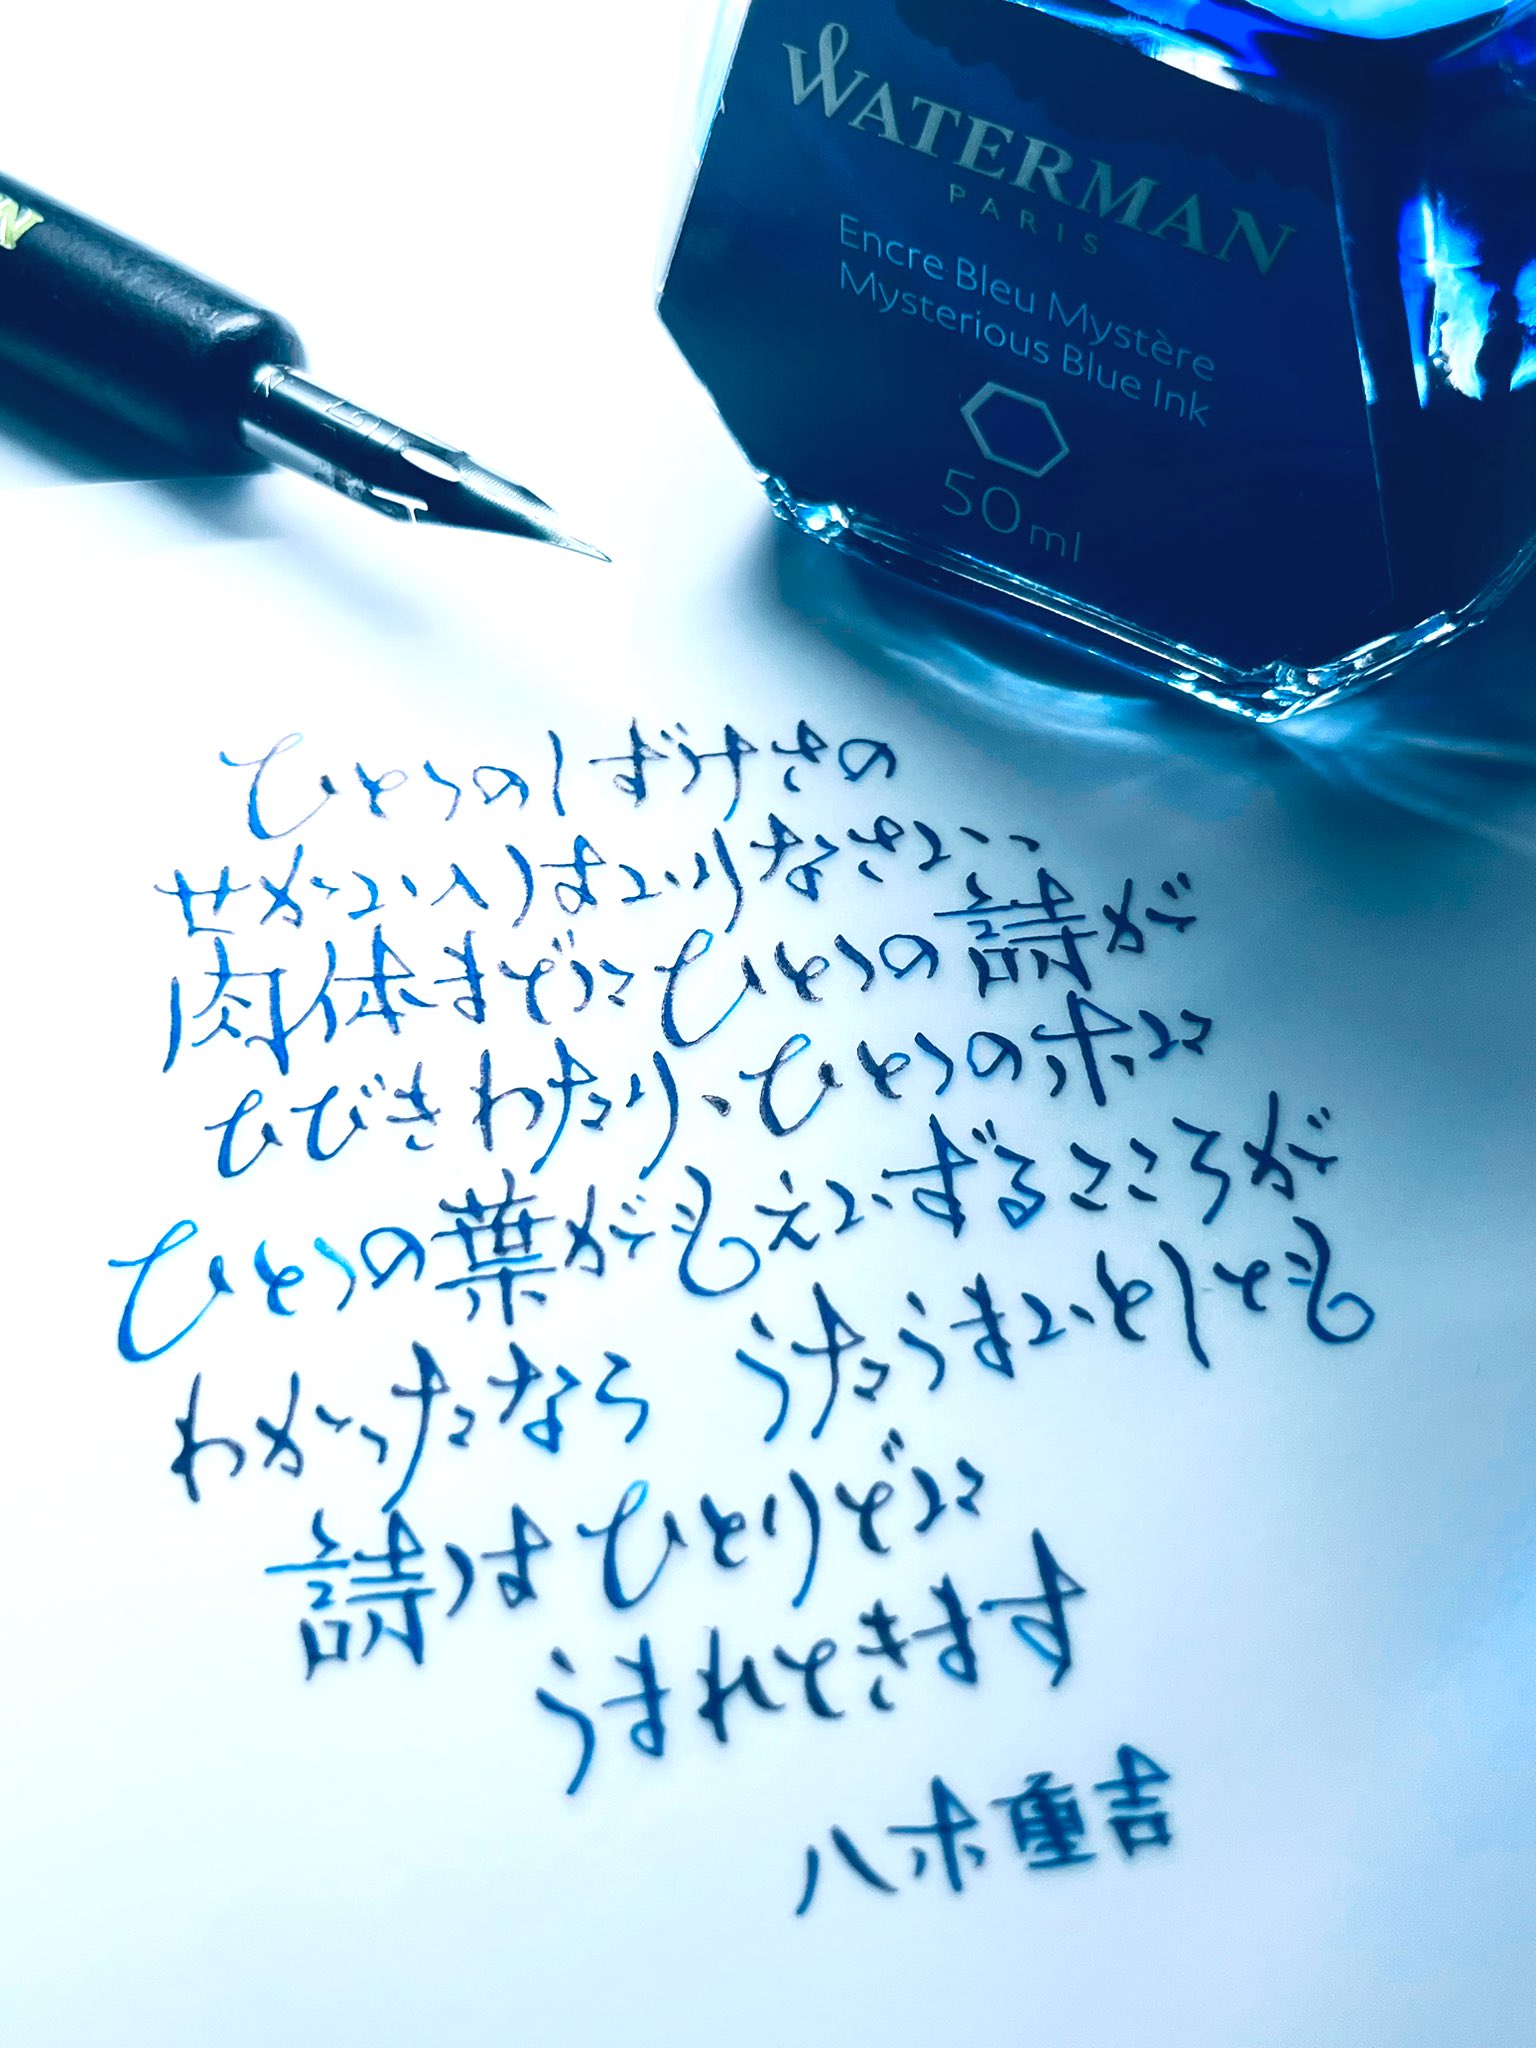 WATERMAN
PARIS
Encre Bleu Mystère
Mysterious Blue Ink
50ml
ひとつのしずけさの
せかいへはいりなさい…
肉体までにひとつの詩が
ひびきわたり、ひとつの木に
ひとつの葉がもえいずるこころが
わかったなら うたうまいとしても
詩はひとりでに
うまれてきます
八木重吉